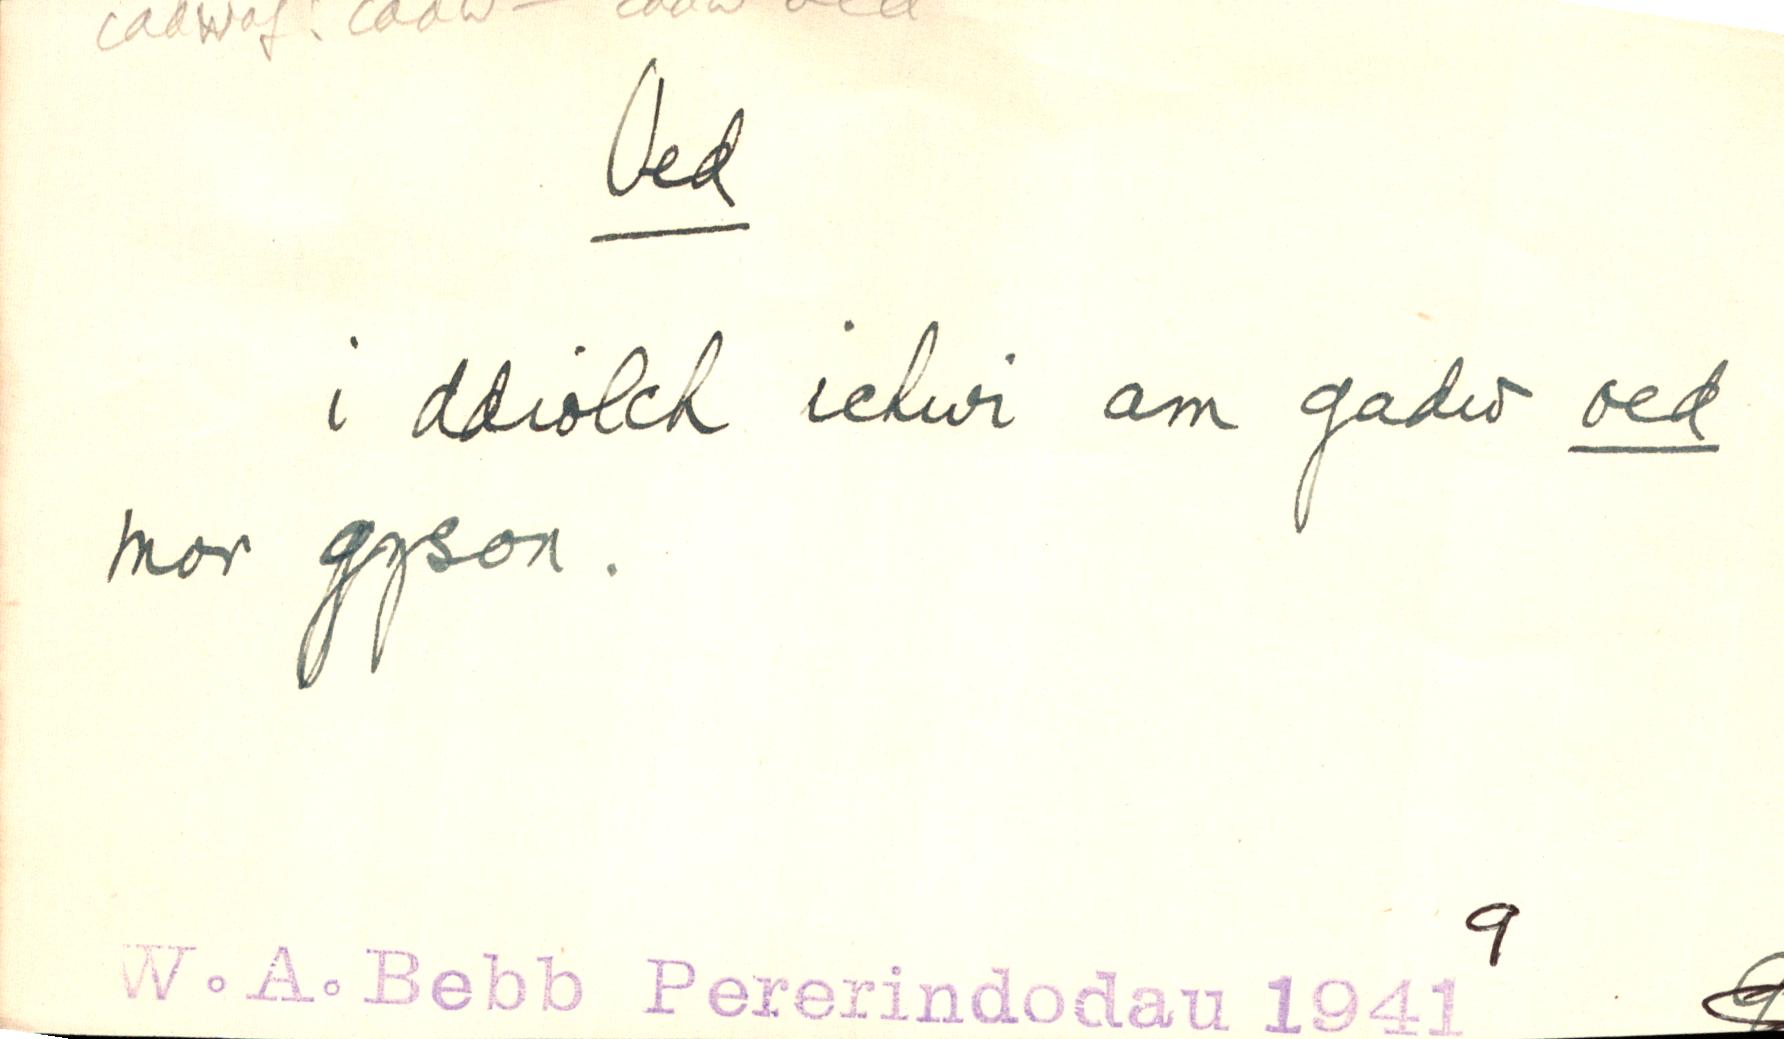 cadwaf: cadw – cadw oed
Oed
i ddiolch ichwi am gadw oed
mor gyson.
9
W.A.Bebb Pererindodau 1941